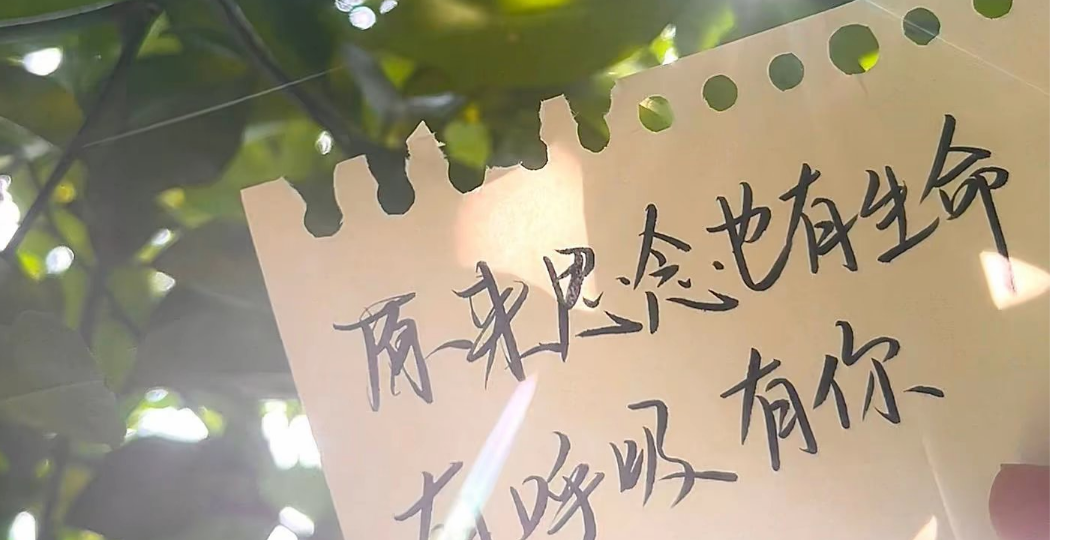 原来思念也有生命
有呼吸 有你